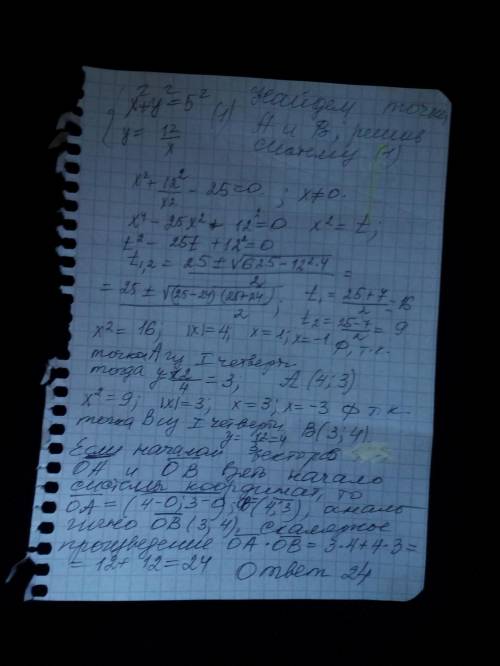 { x² + y² = 5² (1) Найдем точки
y = 12/x А и В, решив
систему (1)
x² + 12²/x2 - 25 = 0 ; x ≠ 0.
x⁴ - 25x² + 12² = 0 x² = t;
t² - 25t + 12² = 0
t₁,₂ = (25 ± √(625 - 12²·4))/2 =
= (25 ± √((25-24)(25+24)))/2 ; t₁ = (25+7)/2 = 16
t₂ = (25-7)/2 = 9
x² = 16; |x| = 4, x = 1; x = -1 ф, т.к.
точка А из I четверти
тогда y = 12/4 = 3, А (4; 3)
x² = 9; |x| = 3; x = 3; x = -3 ф т.к.
точка В из I четверти y = 12/3 = 4 В (3; 4)
Если началом векторов
ОА и ОВ взять начало
системы координат, то
ОА = (4-0; 3-0) (4; 3), аналогично
ОВ (3; 4), скалярное
произведение ОА · ОВ = 3·4 + 4·3 =
= 12 + 12 = 24 Ответ 24